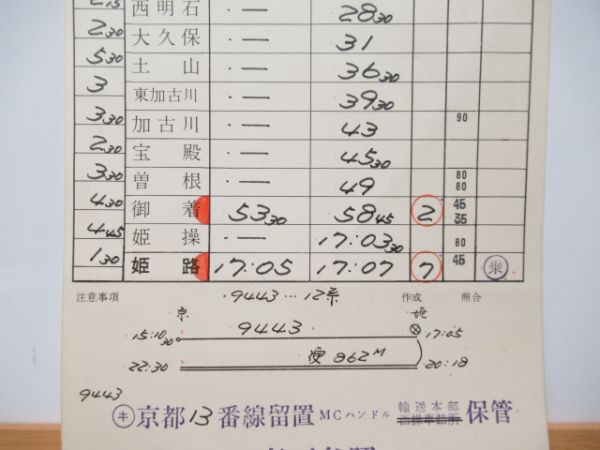 2.15 西明石 ・ー 28 30
2.30 大久保 ・ー 31
5.30 土山 ・ー 36 30
3 東加古川 ・ー 39 30
3.30 加古川 ・ー 43 90
2.30 宝殿 ・ー 45 30
3.30 曽根 ・ー 49 80 80
4.30 御着 53 30 58 45 2 45 35
4.45 姫操 ・ー 17:03 30 80
1.30 姫路 17:05 17:07 7 45 乗
注意事項 ・9443…12系 作成 照合
京 姫
15:10 30 9443 17:05
22:30 便862M 20:18
9443
キ 京都13番線留置 MCハンドル 輸送本部 西操車詰所 保管